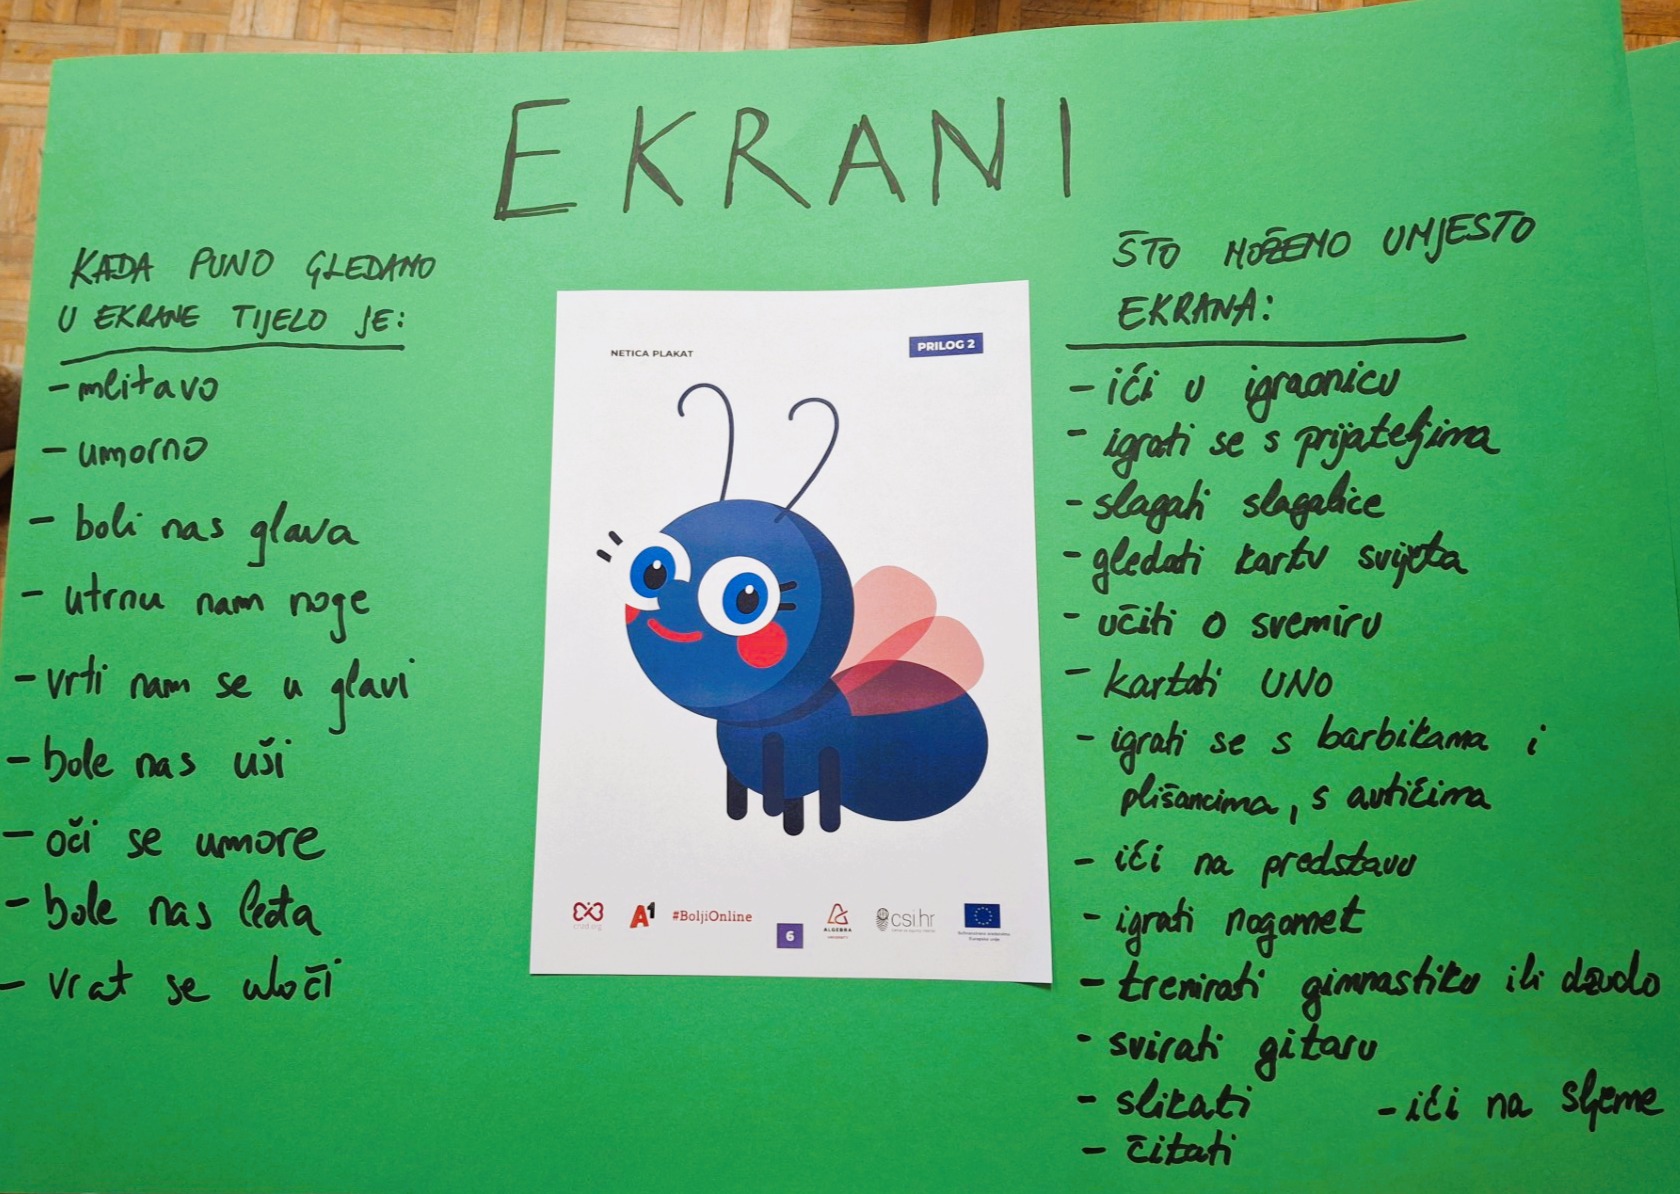 EKRANI
KADA PUNO GLEDAMO
U EKRANE TIJELO JE:
- mlitavo
- umorno
- boli nas glava
- utrnu nam noge
- vrti nam se u glavi
- bole nas uši
- oči se umore
- bole nas leđa
- vrat se ukoči
NETICA PLAKAT
PRILOG 2
A1
#BoljiOnline
6
ALGEBRA
csi.hr
ŠTO MOŽEMO UMJESTO
EKRANA:
- ići u igraonicu
- igrati se s prijateljima
- slagati slagalice
- gledati kartu svijeta
- učiti o svemiru
- kartati UNO
- igrati se s barbikama i
plišancima, s autićima
- ići na predstavu
- igrati nogomet
- trenirati gimnastiku ili džudo
- svirati gitaru
- slikati
- ići na sljeme
- čitati